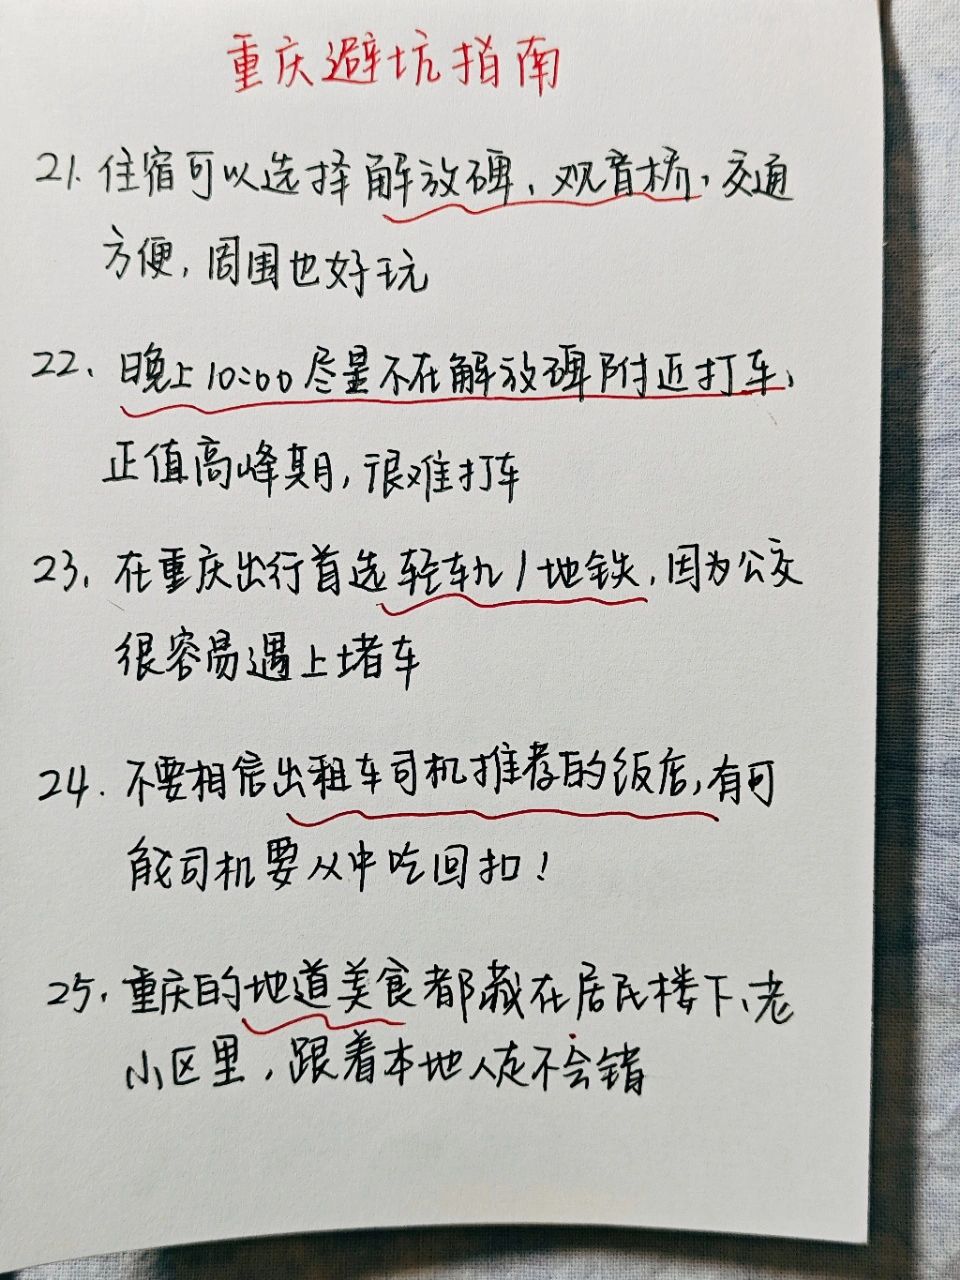 重庆避坑指南
21. 住宿可以选择解放碑、观音桥，交通
方便，周围也好玩
22、晚上10:00尽量不在解放碑附近打车，
正值高峰期，很难打车
23、在重庆出行首选轻轨/地铁，因为公交
很容易遇上堵车
24. 不要相信出租车司机推荐的饭店，有可
能司机要从中吃回扣！
25、重庆的地道美食都藏在居民楼下、老
小区里，跟着本地人走不会错